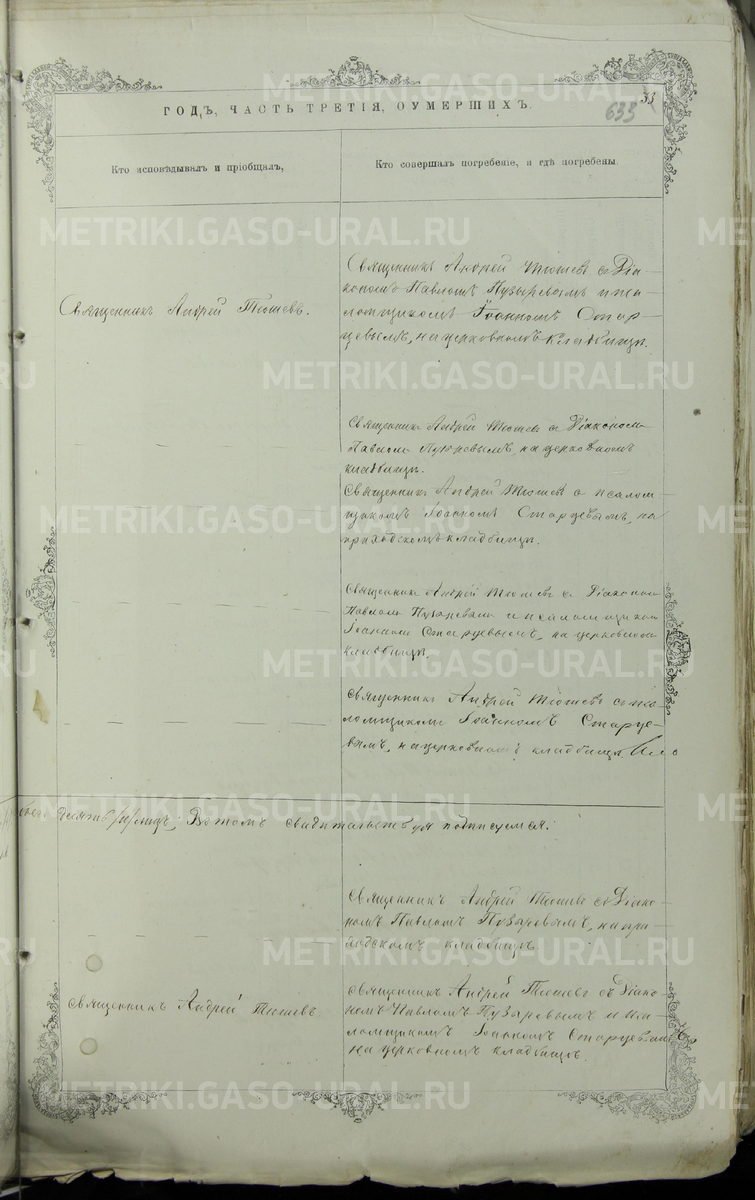 633
33
ГОДЪ, ЧАСТЬ ТРЕТІЯ, ОУМЕРШИХЪ.
Кто исповѣдывалъ и пріобщалъ,
Кто совершалъ погребеніе, и гдѣ погребены.
Священникъ Андрей Тюшевъ.
Священникъ Андрей Тюшевъ съ Діа-
кономъ Павломъ Пузыревымъ и пса-
ломщикомъ Іоанномъ Стар-
цевымъ, на церковномъ кладбищѣ.
Священникъ Андрей Тюшевъ съ Діакономъ
Павломъ Пузыревымъ, на церковномъ
кладбищѣ.
Священникъ Андрей Тюшевъ съ псалом-
щикомъ Іоанномъ Старцевымъ, на
приходскомъ кладбищѣ.
Священникъ Андрей Тюшевъ съ Діакономъ
Павломъ Пузыревымъ и псаломщикомъ
Іоанномъ Старцевымъ, на церковномъ
кладбищѣ.
Священникъ Андрей Тюшевъ съ пса-
ломщикомъ Іоанномъ Старце-
вымъ, на церковномъ кладбищѣ
десять лицъ; Въ томъ свидѣтельствуя подписуемся:
Священникъ Андрей Тюшевъ съ Діако-
номъ Павломъ Пузыревымъ, на при-
ходскомъ кладбищѣ.
Священникъ Андрей Тюшевъ
Священникъ Андрей Тюшевъ съ Діако-
номъ Павломъ Пузыревымъ и пса-
ломщикомъ Іоанномъ Старцевымъ
на церковномъ кладбищѣ.
METRIKI.GASO-URAL.RU